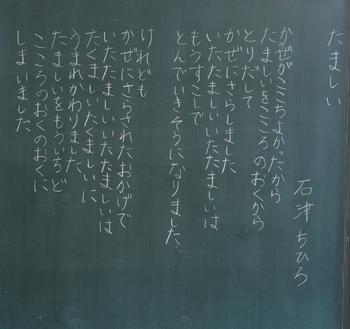 たましい
石津 ちひろ
かぜがここちよかったから
たましいをこころのおくから
とりだして
かぜにさらしました
いたたましいいたたましいは
もうすこしで
とんでいきそうになりました
けれども
かぜにさらされたおかげで
いたたましいいたたましいは
たくましいたくましいに
うまれかわりました
たましいをもういちど
こころのおくのおくに
しまいました